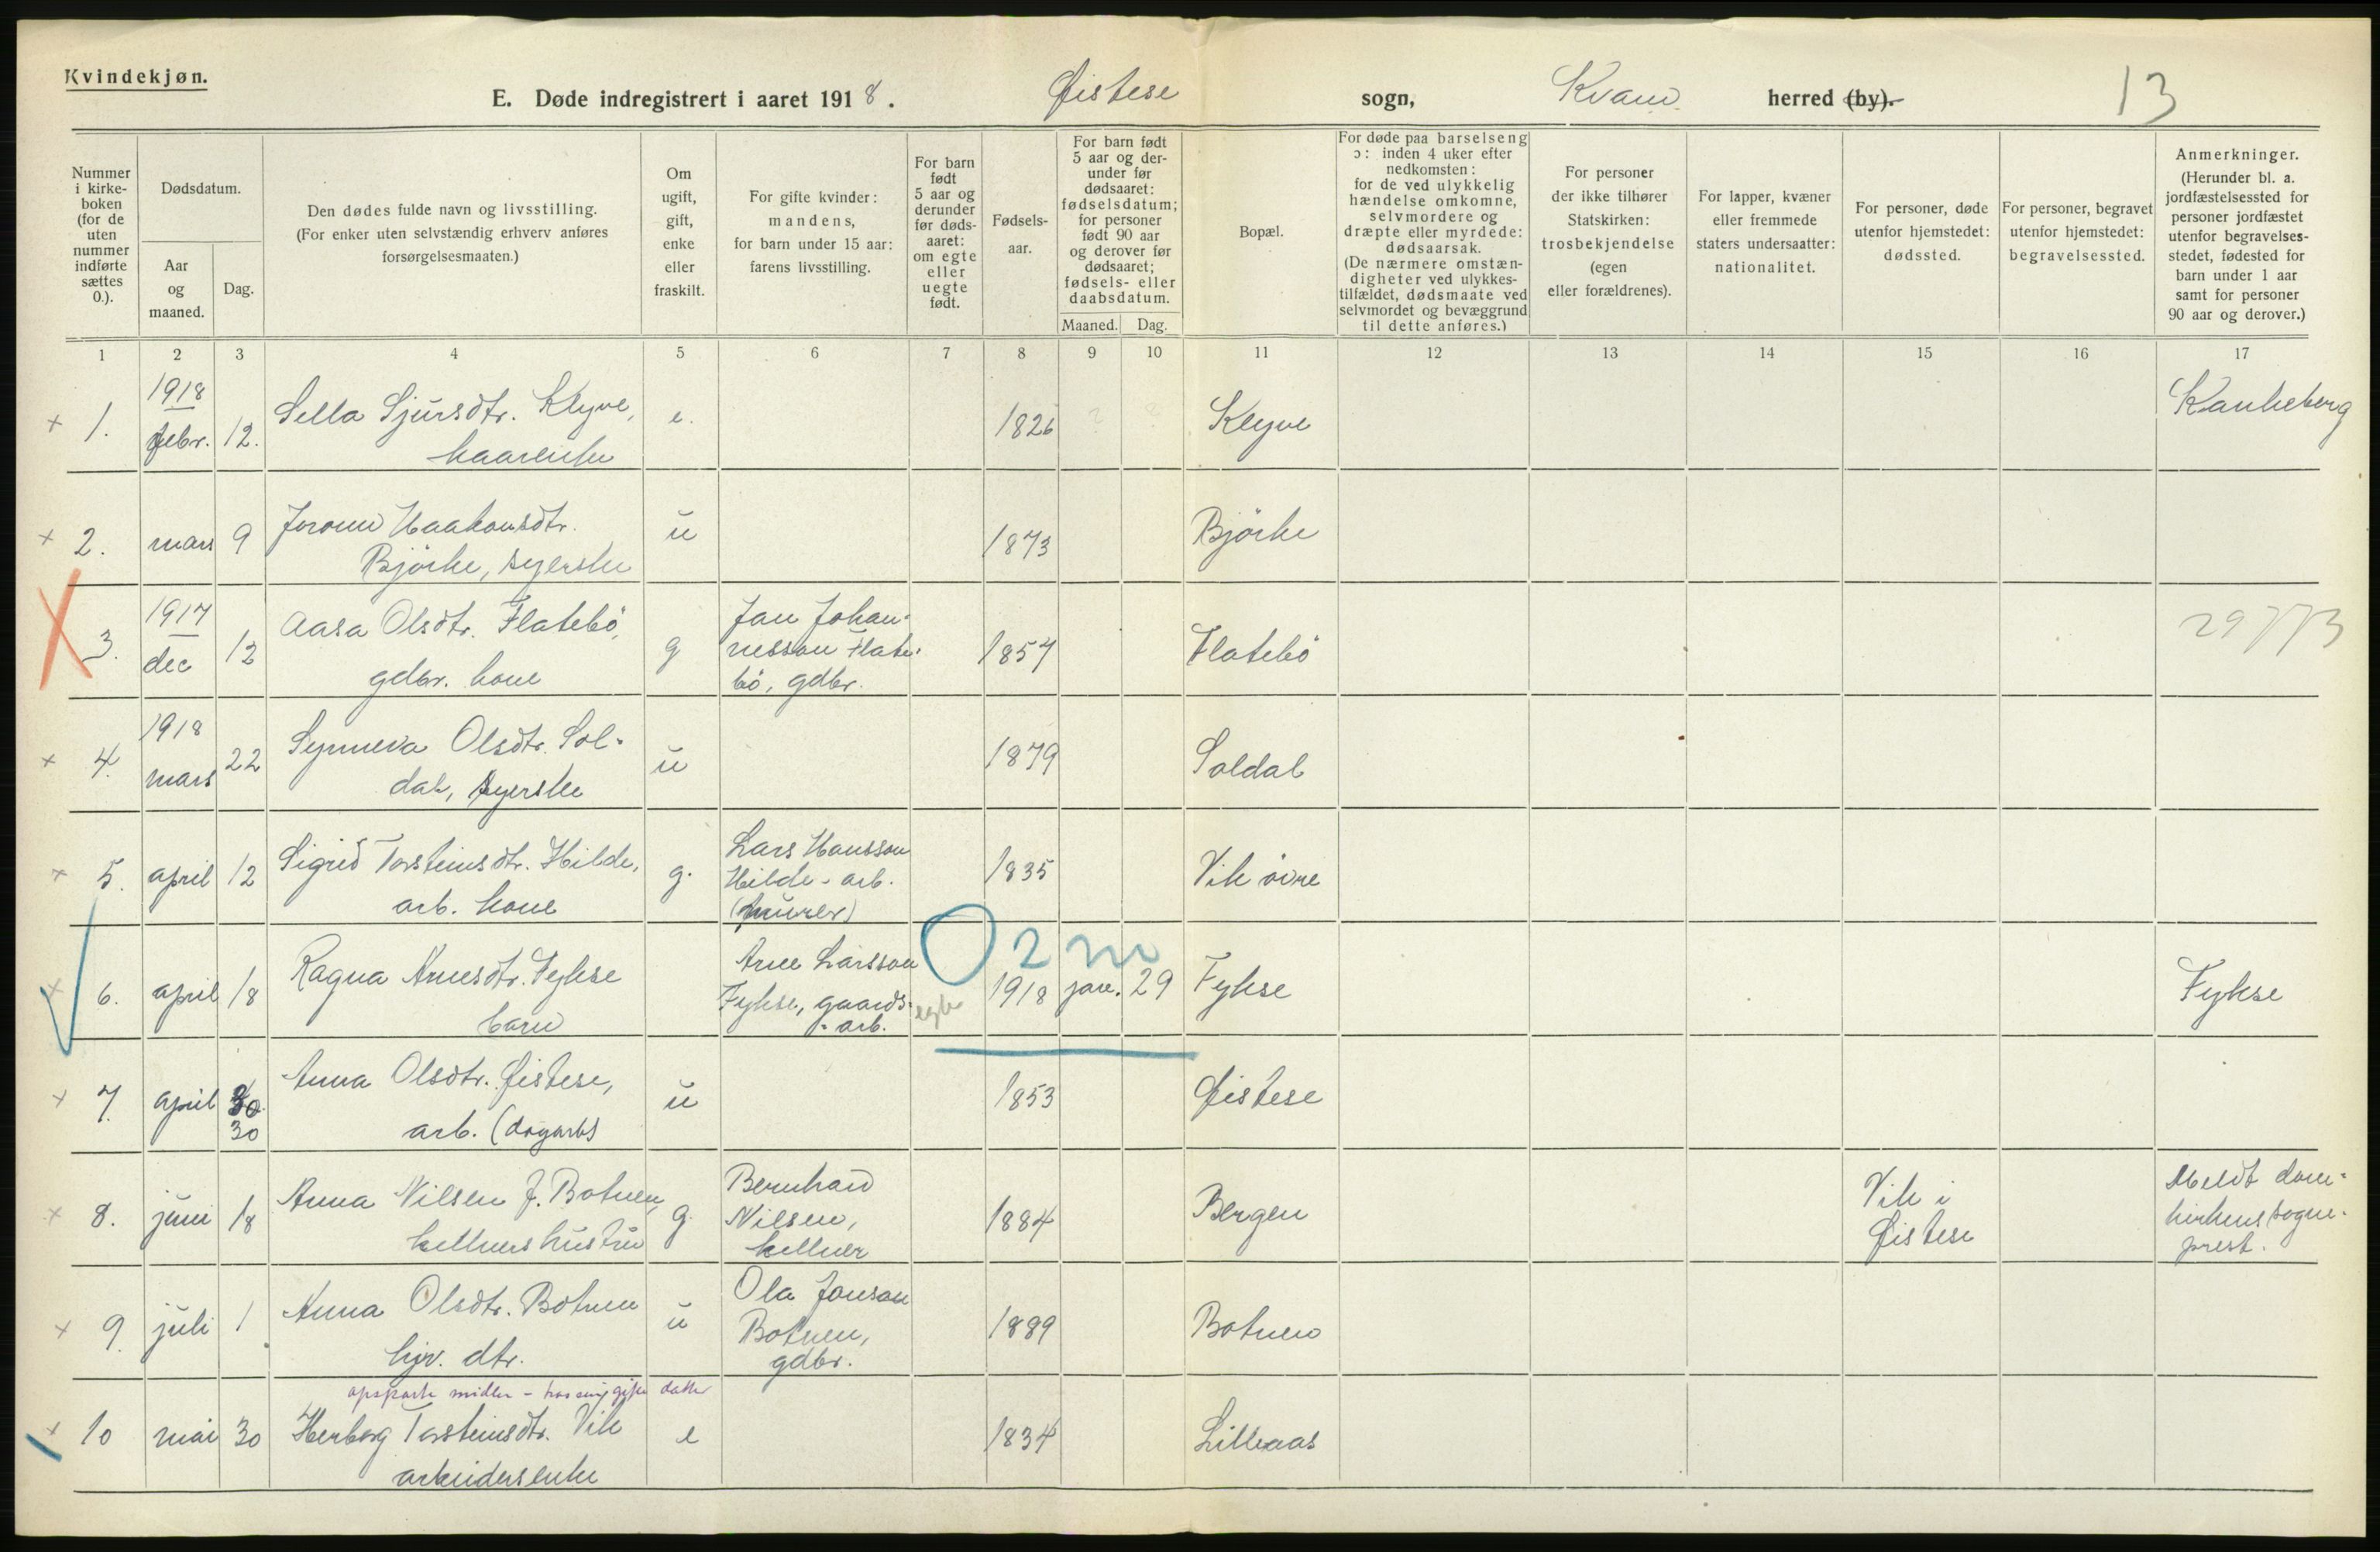 Kvindekjøn.
E. Døde indregistrert i aaret 1918. Øistese sogn, Kvam herred (by). 13
Nummer
i kirke-
boken
(for de
uten
nummer
indførte
sættes
0.).
Dødsdatum.
Aar
og
maaned.
Dag.
Den dødes fulde navn og livsstilling.
(For enker uten selvstændig erhverv anføres
forsørgelsesmaaten.)
Om
ugift,
gift,
enke
eller
fraskilt.
For gifte kvinder:
mandens,
for barn under 15 aar:
farens livsstilling.
For barn
født
5 aar og
derunder
før døds-
aaret:
om egte
eller
uegte
født.
Fødsels-
aar.
For barn født
5 aar og der-
under før
dødsaaret:
fødselsdatum;
for personer
født 90 aar
og derover før
dødsaaret;
fødsels- eller
daabsdatum.
Maaned. Dag.
Bopæl.
For døde paa barselseng
ɔ: inden 4 uker efter
nedkomsten:
for de ved ulykkelig
hændelse omkomne,
selvmordere og
dræpte eller myrdede:
dødsaarsak.
(De nærmere omstæn-
digheter ved ulykkes-
tilfældet, dødsmaate ved
selvmordet og bevæggrund
til dette anføres.)
For personer
der ikke tilhører
Statskirken:
trosbekjendelse
(egen
eller forældrenes).
For lapper, kvæner
eller fremmede
staters undersaatter:
nationalitet.
For personer, døde
utenfor hjemstedet:
dødssted.
For personer, begravet
utenfor hjemstedet:
begravelsessted.
Anmerkninger.
(Herunder bl. a.
jordfæstelsessted for
personer jordfæstet
utenfor begravelses-
stedet, fødested for
barn under 1 aar
samt for personer
90 aar og derover.)
1 2 3 4 5 6 7 8 9 10 11 12 13 14 15 16 17
1918
× 1. febr. 12. Sella Sjursdtr. Klyve, e. 1826 Klyve
kaarenke
× 2. mars 9 Joronn Haakonsdtr. ŭ 1873 Björke
Björke, syerske
1917
3. dec 12 Aasa Olsdtr. Flatebö, g Jan Johan- 1857 Flatebö
gdbr. kone nesson Flate-
bö, gdbr.
1918
× 4. mars 22 Synneva Olsdtr. Sol- ŭ 1879 Soldal
dal, syerske
× 5. april 12 Sigrid Torsteinsdtr. Hilde, g. Lars Hansson 1835 Vik övre
arb. kone Hilde - arb.
(murer)
0 2 m
× 6. april 18 Ragna Arnesdtr. Fykse Arne Larsson egte 1918 jan. 29 Fykse Fykse
barn Fykse, gaards-
arb.
× 7. april 30 Anna Olsdtr. Øistese, ŭ 1853 Øistese
30 arb. (dagarb)
× 8. juni 18 Anna Nilsen f. Botnen, g. Bernhard 1884 Bergen Vik i Meldt dom-
kellners hustru Nilsen, Øistese kirkens sogne-
kellner prest.
× 9. juli 1 Anna Olsdtr. Botnen ŭ Ola Jonson 1889 Botnen
hjv. dtr. Botnen,
gdbr.
opsparte midler - hos sin gifte datter
× 10 mai 30 Herborg Torsteinsdtr. Vik e 1834 Lilleaas
arbeidersenke